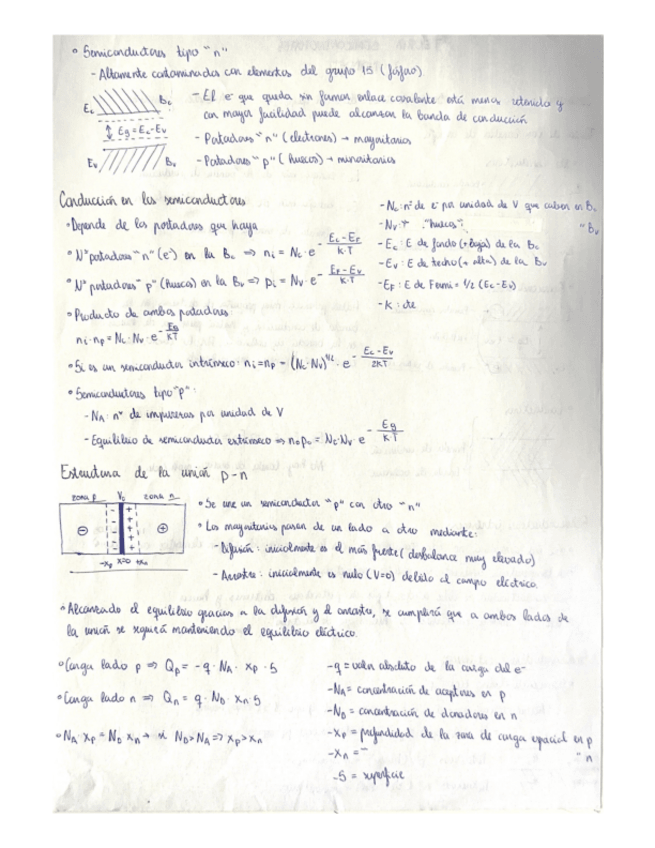 • Semiconductores tipo "n"
- Altamente contaminados con elementos del grupo 15 (fósforo)
- El e⁻ que queda sin formar enlace covalente está menos retenido y
con mayor facilidad puede alcanzar la banda de conducción
- Portadores "n" (electrones) → mayoritarios
- Portadores "p" (huecos) → minoritarios
Ec Bc
Eg = Ec - Ev
Ev Bv
Conducción en los semiconductores
• Depende de los portadores que haya
• Nº portadores "n" (e⁻) en la Bc => ni = Nc · e^(- (Ec - EF)/(K·T))
• Nº portadores "p" (huecos) en la Bv => pi = Nv · e^(- (EF - Ev)/(K·T))
• Producto de ambos portadores:
ni · np = Nc · Nv · e^(- Eg/(KT))
• Si es un semiconductor intrínseco: ni = np = (Nc · Nv)^(1/2) · e^(- (Ec - Ev)/(2KT))
• Semiconductores tipo "p":
- NA: nº de impurezas por unidad de V
- Equilibrio de semiconductor extrínseco => n₀p₀ = Nc · Nv · e^(- Eg/(K·T))
- Nc: nº de e⁻ por unidad de V que caben en Bc
- Nv " "huecos" " Bv
- Ec: E de fondo (+ baja) de la Bc
- Ev: E de techo (+ alta) de la Bv
- EF: E de Fermi = 1/2 (Ec - Ev)
- K: cte
Estructura de la unión p-n
zona p V₀ zona n
- +
⊖ ⊕
-xp x=0 +xn
• Se une un semiconductor "p" con otro "n"
• Los mayoritarios pasan de un lado a otro mediante:
- Difusión: inicialmente es el más fuerte (desbalance muy elevado)
- Arrastre: inicialmente es nulo (V=0) debido al campo eléctrico.
• Alcanzado el equilibrio gracias a la difusión y el arrastre, se cumplirá que a ambos lados de
la unión se seguirá manteniendo el equilibrio eléctrico.
• Carga lado p => Qp = -q · NA · xp · S
• Carga lado n => Qn = q · ND · xn · S
• NA · xp = ND xn → si ND > NA => xp > xn
- q = valor absoluto de la carga del e⁻
- NA = concentración de aceptores en p
- ND = concentración de donadores en n
- xp = profundidad de la zona de carga espacial en p
- xn = " " n
- S = superficie